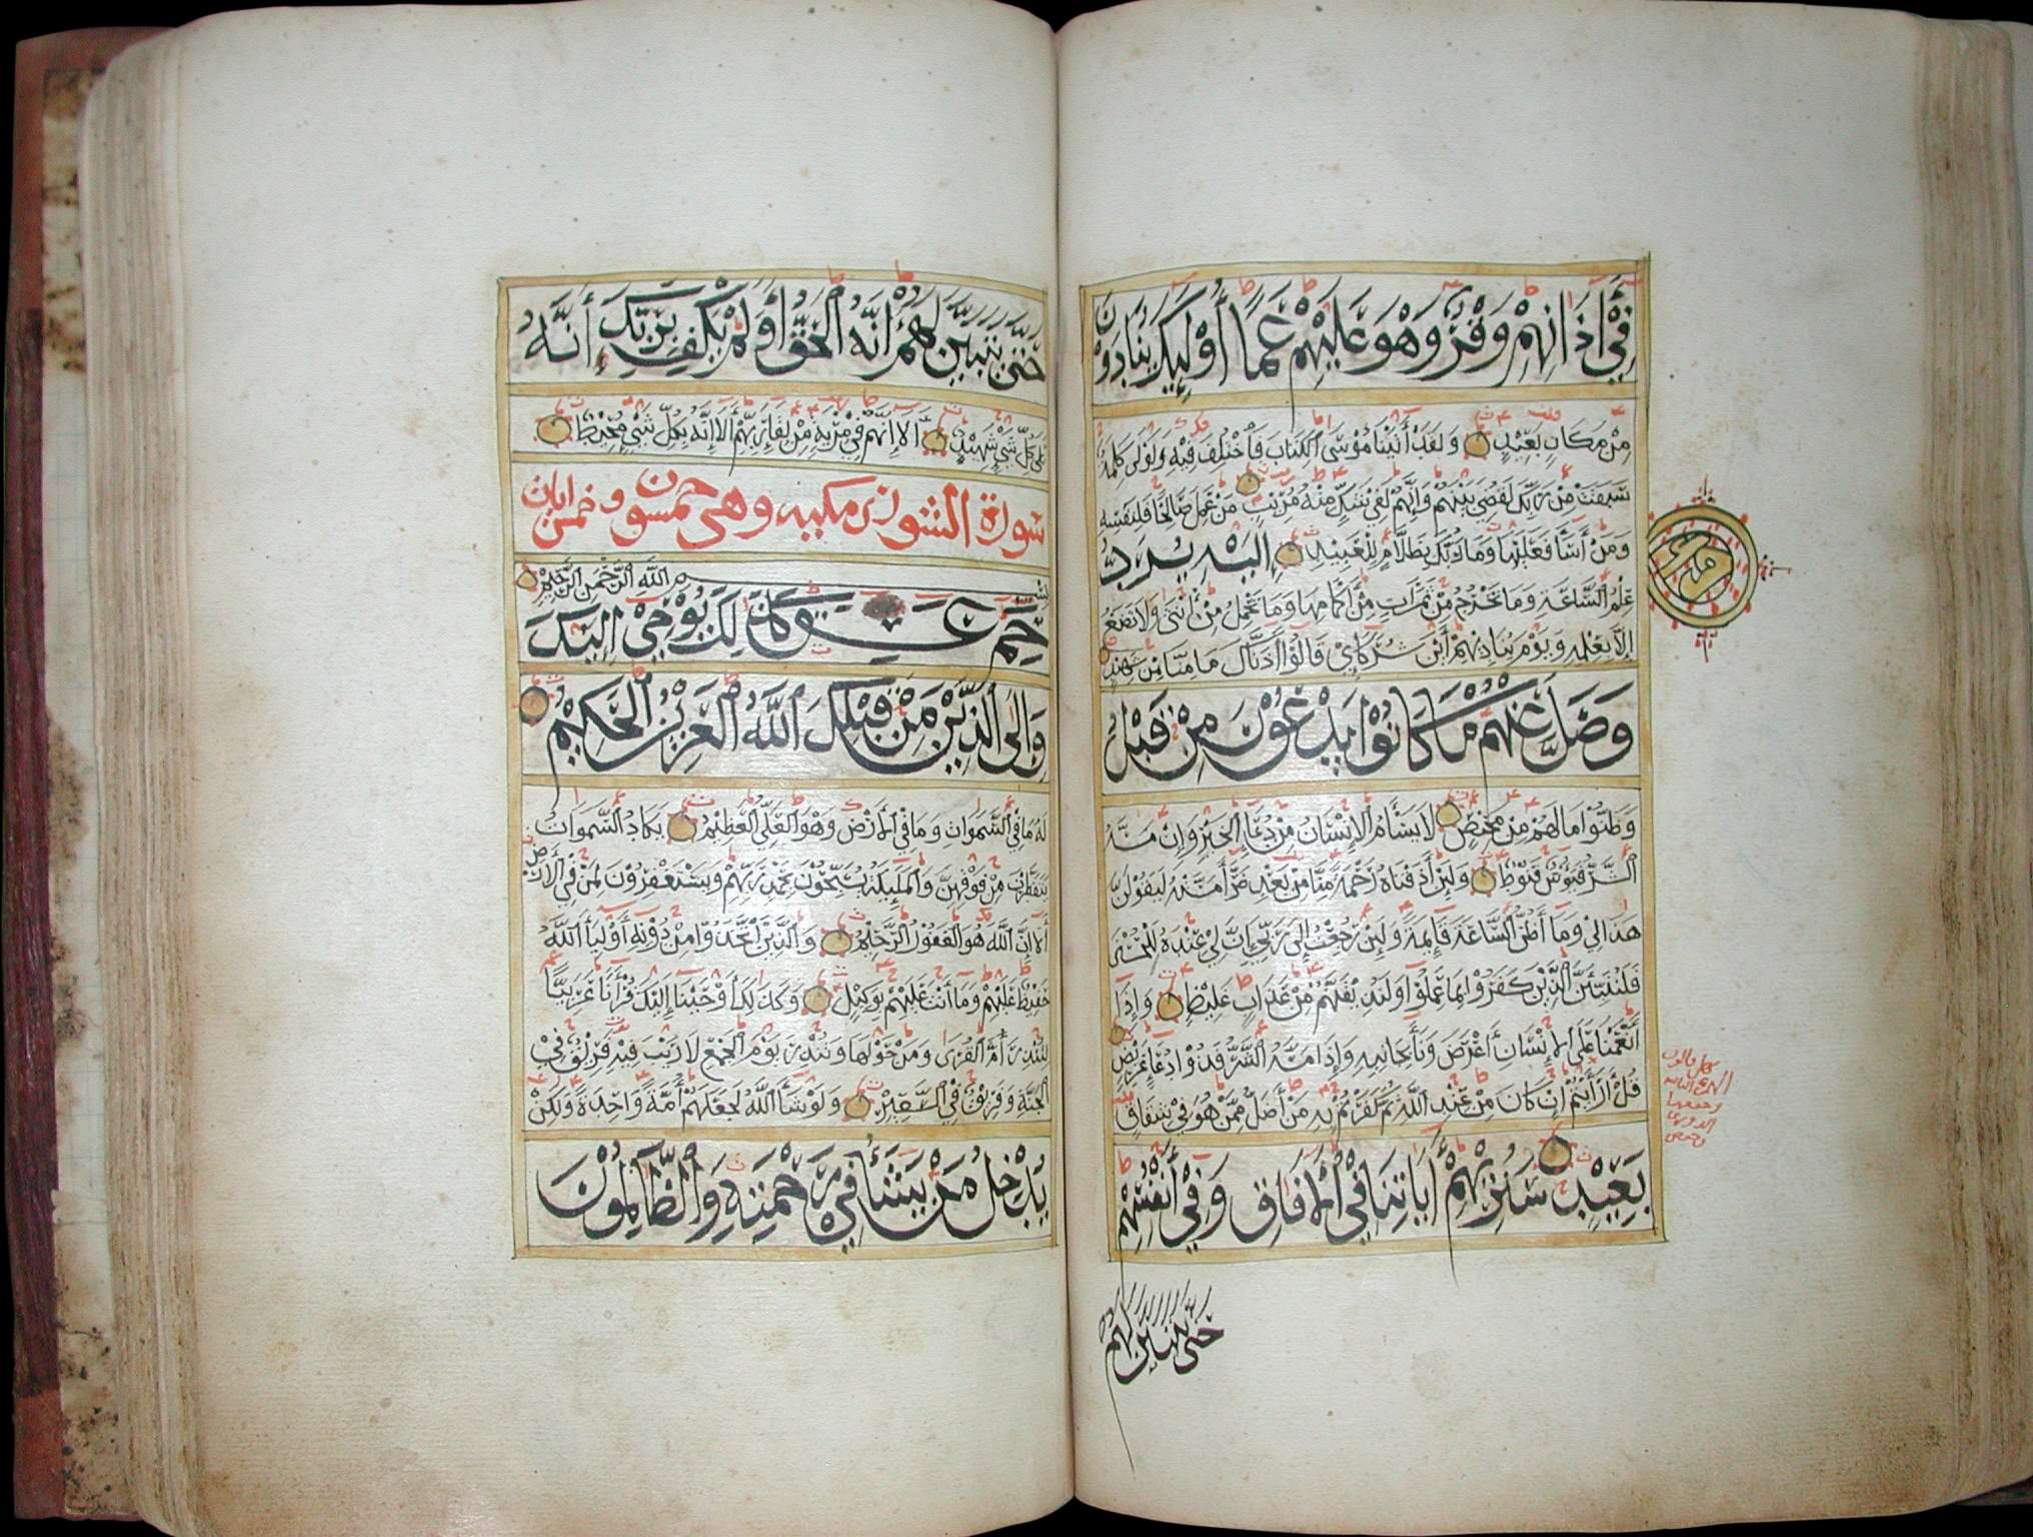 فِي أَذَانِهِمْ وَقْرٌ وَهْوَ عَلَيْهِمْ عَمًا أُوْلَٰئِكَ يُنَادَوْنَ
مِنْ مَكَانٍ بَعِيْدٍ وَلَقَدْ أَتَيْنَا مُوْسَى الْكِتَابَ فَاخْتُلِفَ فِيْهِ وَلَوْلَا كَلِمَةٌ
سَبَقَتْ مِنْ رَبِّكَ لَقُضِيَ بَيْنَهُمْ وَإِنَّهُمْ لَفِي شَكٍّ مِنْهُ مُرِيْبٍ مَنْ عَمِلَ صَالِحًا فَلِنَفْسِهِ
وَمَنْ أَسَآ فَعَلَيْهَا وَمَا رَبُّكَ بِظَلَّامٍ لِلْعَبِيْدِ إِلَيْهِ يُرَدُّ
عِلْمُ السَّاعَةِ وَمَا تَخْرُجُ مِنْ ثَمَرَاتٍ مِنْ أَكْمَامِهَا وَمَا تَحْمِلُ مِنْ أُنْثَى وَلَا تَضَعُ
إِلَّا بِعِلْمِهِ وَيَوْمَ يُنَادِيْهِمْ أَيْنَ شُرَكَايَ قَالُوْا أَذَنَّاكَ مَا مِنَّا مِنْ شَهِيْدٍ
وَضَلَّ عَنْهُمْ مَا كَانُوْا يَدْعُوْنَ مِنْ قَبْلُ
وَظَنُّوْا مَا لَهُمْ مِنْ مَحِيْصٍ لَا يَسْأَمُ الْإِنْسَانُ مِنْ دُعَآ الْخَيْرِ وَإِنْ مَسَّهُ
الشَّرُّ فَيَؤُسٌ قَنُوْطٌ وَلَئِنْ أَذَقْنَاهُ رَحْمَةً مِنَّا مِنْ بَعْدِ ضَرَّآ مَسَّتْهُ لَيَقُوْلَنَّ
هَذَا لِي وَمَآ أَظُنُّ السَّاعَةَ قَائِمَةً وَلَئِنْ رُجِعْتُ إِلَى رَبِّي إِنَّ لِي عِنْدَهُ لَلْحُسْنَى
فَلَنُنَبِّئَنَّ الَّذِيْنَ كَفَرُوْا بِمَا عَمِلُوْا وَلَنُذِيْقَنَّهُمْ مِنْ عَذَابٍ غَلِيْظٍ وَإِذَآ
أَنْعَمْنَا عَلَى الْإِنْسَانِ أَعْرَضَ وَنَأَى بِجَانِبِهِ وَإِذَا مَسَّهُ الشَّرُّ فَذُوْ دُعَآ عَرِيْضٍ
قُلْ أَرَأَيْتُمْ إِنْ كَانَ مِنْ عِنْدِ اللَّهِ ثُمَّ كَفَرْتُمْ بِهِ مَنْ أَضَلُّ مِمَّنْ هُوَ فِي شِقَاقٍ
بَعِيْدٍ سَنُرِيْهِمْ أَيَاتِنَا فِي الْأَفَاقِ وَفِي أَنْفُسِهِمْ
حَتَّى يَتَبَيَّنَ لَهُمْ
حَتَّى يَتَبَيَّنَ لَهُمْ أَنَّهُ الْحَقُّ أَوَلَمْ يَكْفِ بِرَبِّكَ أَنَّهُ
عَلَى كُلِّ شَيْءٍ شَهِيْدٌ أَلَا إِنَّهُمْ فِي مِرْيَةٍ مِنْ لِقَآ رَبِّهِمْ أَلَا إِنَّهُ بِكُلِّ شَيْءٍ مُحِيْطٌ
سورة الشورى مكيه وهي خمسون وخمس ايات
بِسْمِ اللَّهِ الرَّحْمَنِ الرَّحِيْمِ
حم عسق كَذَلِكَ يُوْحِي إِلَيْكَ
وَإِلَى الَّذِيْنَ مِنْ قَبْلِكَ اللَّهُ الْعَزِيْزُ الْحَكِيْمُ
لَهُ مَا فِي السَّمَوَاتِ وَمَا فِي الْأَرْضِ وَهْوَ الْعَلِيُّ الْعَظِيْمُ يَكَادُ السَّمَوَاتُ
يَتَفَطَّرْنَ مِنْ فَوْقِهِنَّ وَالْمَلَٰئِكَةُ يُسَبِّحُوْنَ بِحَمْدِ رَبِّهِمْ وَيَسْتَغْفِرُوْنَ لِمَنْ فِي الْأَرْضِ
أَلَا إِنَّ اللَّهَ هُوَ الْغَفُوْرُ الرَّحِيْمُ وَالَّذِيْنَ اتَّخَذُوْا مِنْ دُوْنِهِ أَوْلِيَآ اللَّهُ
حَفِيْظٌ عَلَيْهِمْ وَمَآ أَنْتَ عَلَيْهِمْ بِوَكِيْلٍ وَكَذَلِكَ أَوْحَيْنَا إِلَيْكَ قُرْأَنًا عَرَبِيًّا
لِتُنْذِرَ أُمَّ الْقُرَى وَمَنْ حَوْلَهَا وَتُنْذِرَ يَوْمَ الْجَمْعِ لَا رَيْبَ فِيْهِ فَرِيْقٌ فِي
الْجَنَّةِ وَفَرِيْقٌ فِي السَّعِيْرِ وَلَوْ شَآ اللَّهُ لَجَعَلَهُمْ أُمَّةً وَاحِدَةً وَلَكِنْ
يُدْخِلُ مَنْ يَشَآ فِي رَحْمَتِهِ وَالظَّالِمُوْنَ